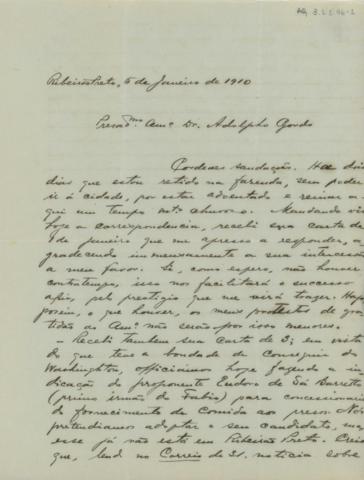 AG 3.2.2.96-1
Ribeirão Preto, 5 de Janeiro de 1910
Presad.mo Am.o Dr. Adolpho Gordo
Cordeaes saudação. Ha dois
dias que estou retido na fazenda, sem poder
ir á cidade, por estar adoentado e reinar a
qui um tempo m.to chuvoso. Mandando vir
hoje a correspondencia, recebi sua carta de
1 de Janeiro que me apresso a responder, a
gradecendo immensamente a sua intercessão
a meu favor. Si, como espero, não houver
contratempo, isso nos facilitará o successo
apis, pelo prestigio que me virá trazer. Haja
porem, o que houver, os meus protestos de gra
tidão ao Am.o não serão por isso menores.
— Recebi tambem sua carta de 3; em vista
do que teve a bondade de conseguir do
Washington, officiamos hoje fazendo a in
dicação do proponente Eudoro de Sá Barreto
(primo irmão do Fabio) para concessionario
do fornecimento de Comida aos presos. Nós
pretendiamos adoptar o seu candidato, mas
esse já não está em Ribeirão Preto. Creio
que, lendo no Correio de 31, noticia sobre